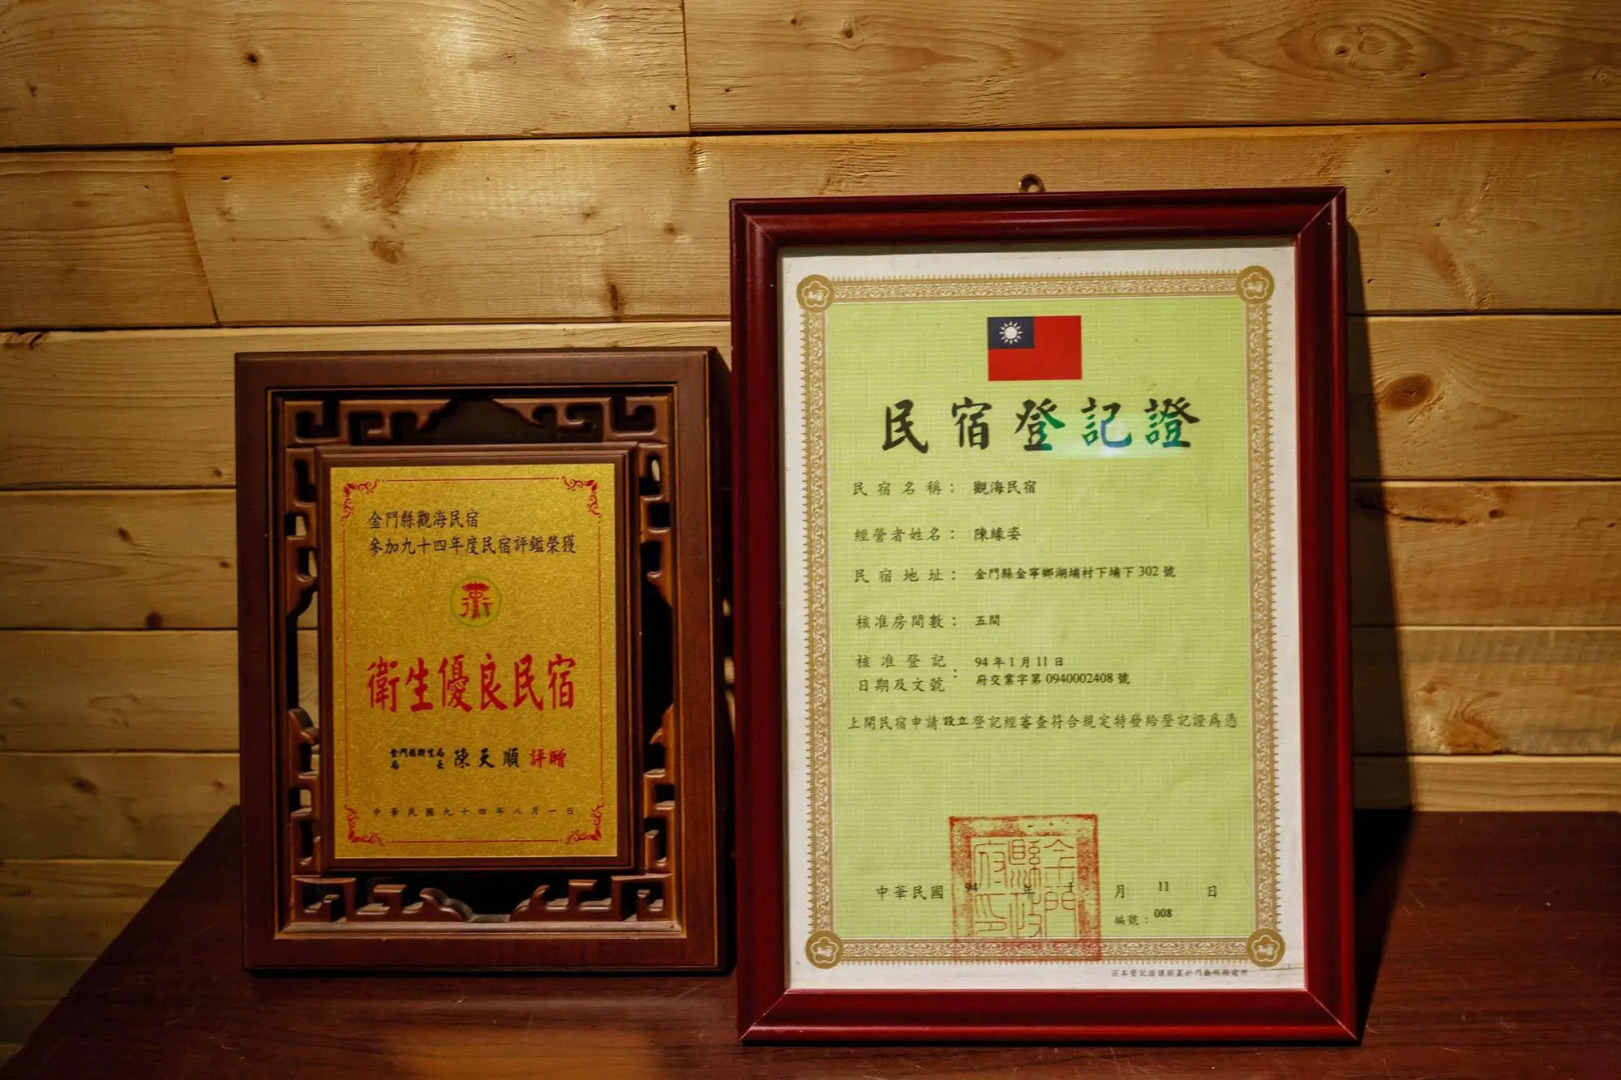 金門縣觀海民宿
參加九十四年度民宿評鑑榮獲
衛生優良民宿
金門縣衛生局
局長
陳天順 評贈
中華民國九十四年八月一日
民宿登記證
民宿名稱： 觀海民宿
經營者姓名： 陳緣姿
民宿地址： 金門縣金寧鄉湖埔村下埔下 302 號
核准房間數： 五間
核准登記
日期及文號：
94 年 1 月 11 日
府交業字第 0940002408 號
上開民宿申請設立登記經審查符合規定特發給登記證為憑
金門縣政府印
中華民國 94 年 1 月 11 日
編號：008